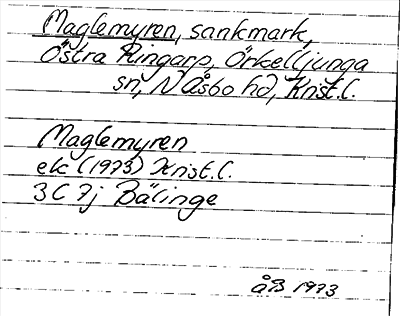 Maglemyren, sankmark,
Östra Ringarp, Örkelljunga
sn, N Åsbo hd, Krist.l.
Maglemyren
ek (1973) Krist.l.
3C 7j Bälinge
åB 1973